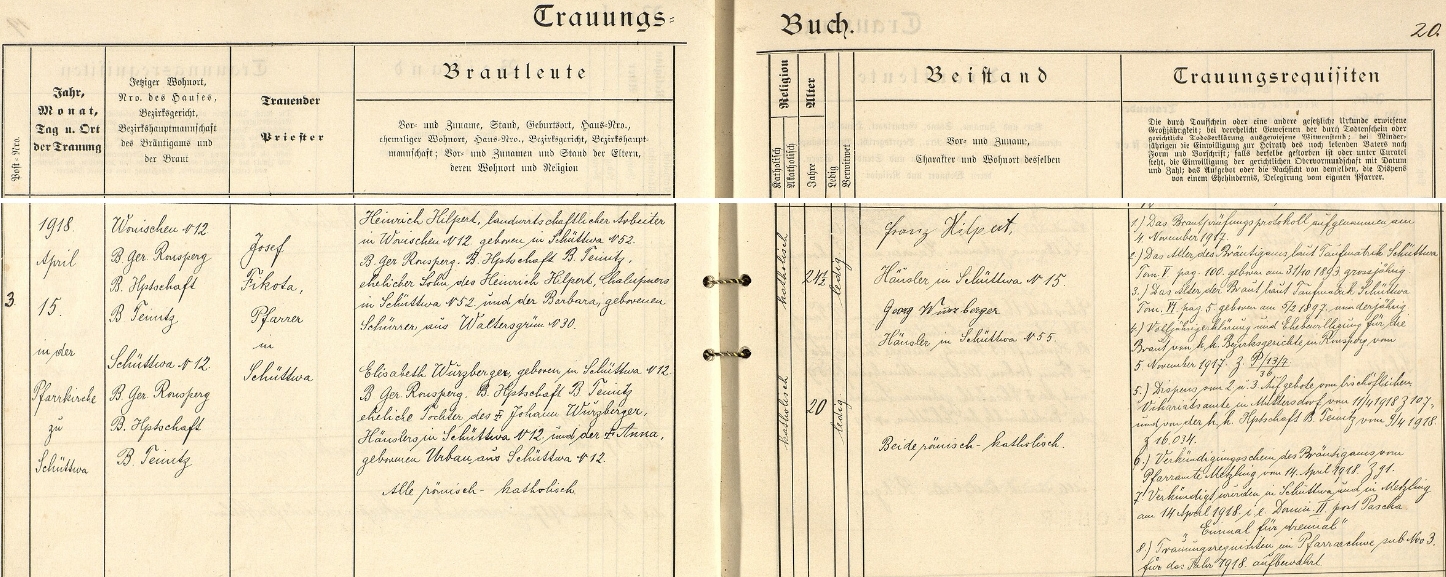 Trauungs-
Buch.
20.
Post-Nro.
Jahr,
Monat,
Tag u. Ort
der Trauung
Jetziger Wohnort,
Nro. des Hauses,
Bezirksgericht,
Bezirkshauptmannschaft
des Bräutigams und
der Braut
Trauender
Priester
Brautleute
Vor- und Zuname, Stand, Geburtsort, Haus-Nro.,
ehemaliger Wohnort, Haus-Nro., Bezirksgericht, Bezirkshaupt-
mannschaft; Vor- und Zunamen und Stand der Eltern,
deren Wohnort und Religion
Religion
Katholisch
Akatholisch
Alter
Jahre
Ledig
Verwitwet
Beistand
Vor- und Zuname,
Charakter und Wohnort desselben
Trauungsrequisiten
Die durch Taufschein oder eine andere gesetzliche Urkunde erwiesene
Großjährigkeit; bei verehelicht Gewesenen der durch Todtenschein oder
gerichtliche Todeserklärung ausgewiesene Witwenstand; bei Minder-
jährigen die Einwilligung zur Heirath des noch lebenden Vaters nach
Form und Vorschrift; falls derselbe gestorben ist oder unter Curatel
steht, die Einwilligung der gerichtlichen Obervormundschaft mit Datum
und Zahl; das Aufgebot oder die Nachsicht von demselben, die Dispens
von einem Ehehindernis, Delegirung vom eigenen Pfarrer.
3
1918
April
15.
in der
Pfarrkirche
zu
Schüttwa
Wonischen N 12
B. Ger. Ronsperg
B. Hptschaft
B Teinitz
Schüttwa N 12.
B. Ger. Ronsperg
B. Hptschaft
B Teinitz
Josef
Fikota,
Pfarrer
in
Schüttwa
Heinrich Hilpert, landwirtschaftlicher Arbeiter
in Wonischen N 12, geboren in Schüttwa N 52.
B. Ger. Ronsperg. B. Hptschaft B. Teinitz,
ehelicher Sohn des Heinrich Hilpert, Chalupners
in Schüttwa N 52 und der Barbara, geborenen
Schürrer, aus Waltersgrün N 30.
Elisabeth Wurzberger, geboren in Schüttwa N 12.
B Ger. Ronsperg. B. Hptschaft B Teinitz
eheliche Tochter des † Johann Wurzberger,
Häuslers in Schüttwa N 12 und der † Anna,
geborenen Urban, aus Schüttwa N 12.
Alle römisch-katholisch
katholisch
24
ledig
katholisch
20
ledig
Franz Hilpert,
Häusler in Schüttwa N 15.
Georg Wurzberger
Häusler in Schüttwa N 55.
Beide römisch-katholisch.
1.) Das Brautprüfungsprotokoll aufgenommen am
4 November 1917.
2.) Das Alter des Bräutigams, laut Taufmatrik Schüttwa
Tom. V. pag. 100. geboren am 31/10 1893 grossjährig.
3.) Das Alter der Braut laut Taufmatrik Schüttwa
Tom. VI pag 5. geboren am 5/2 1897. minderjährig
4.) Volljährigerklärung und Ehebewilligung für die
Braut vom k. k. Bezirksgerichte in Ronsperg vom
5 November 1917. Z P 13/7
36
5.) Dispens vom 2 u 3 Aufgebote vom bischöflichen
Vikariatsamte in Muttersdorf vom 11/4 1918 Z 107,
und von der k. k. Hptschaft B. Teinitz vom 9/4 1918
Z 16.034.
6.) Verkündigungsschein des Bräutigams vom
Pfarramte Metzling vom 14. April 1918. Z 91.
7. Verkündigt wurden in Schüttwa und in Metzling
am 14 April 1918. i. e. Domin. II. post Pascha
„Einmal für dreimal"
8.) Trauungsrequisiten im Pfarrarchive sub Nro 3.
für das Jahr 1918. aufbewahrt